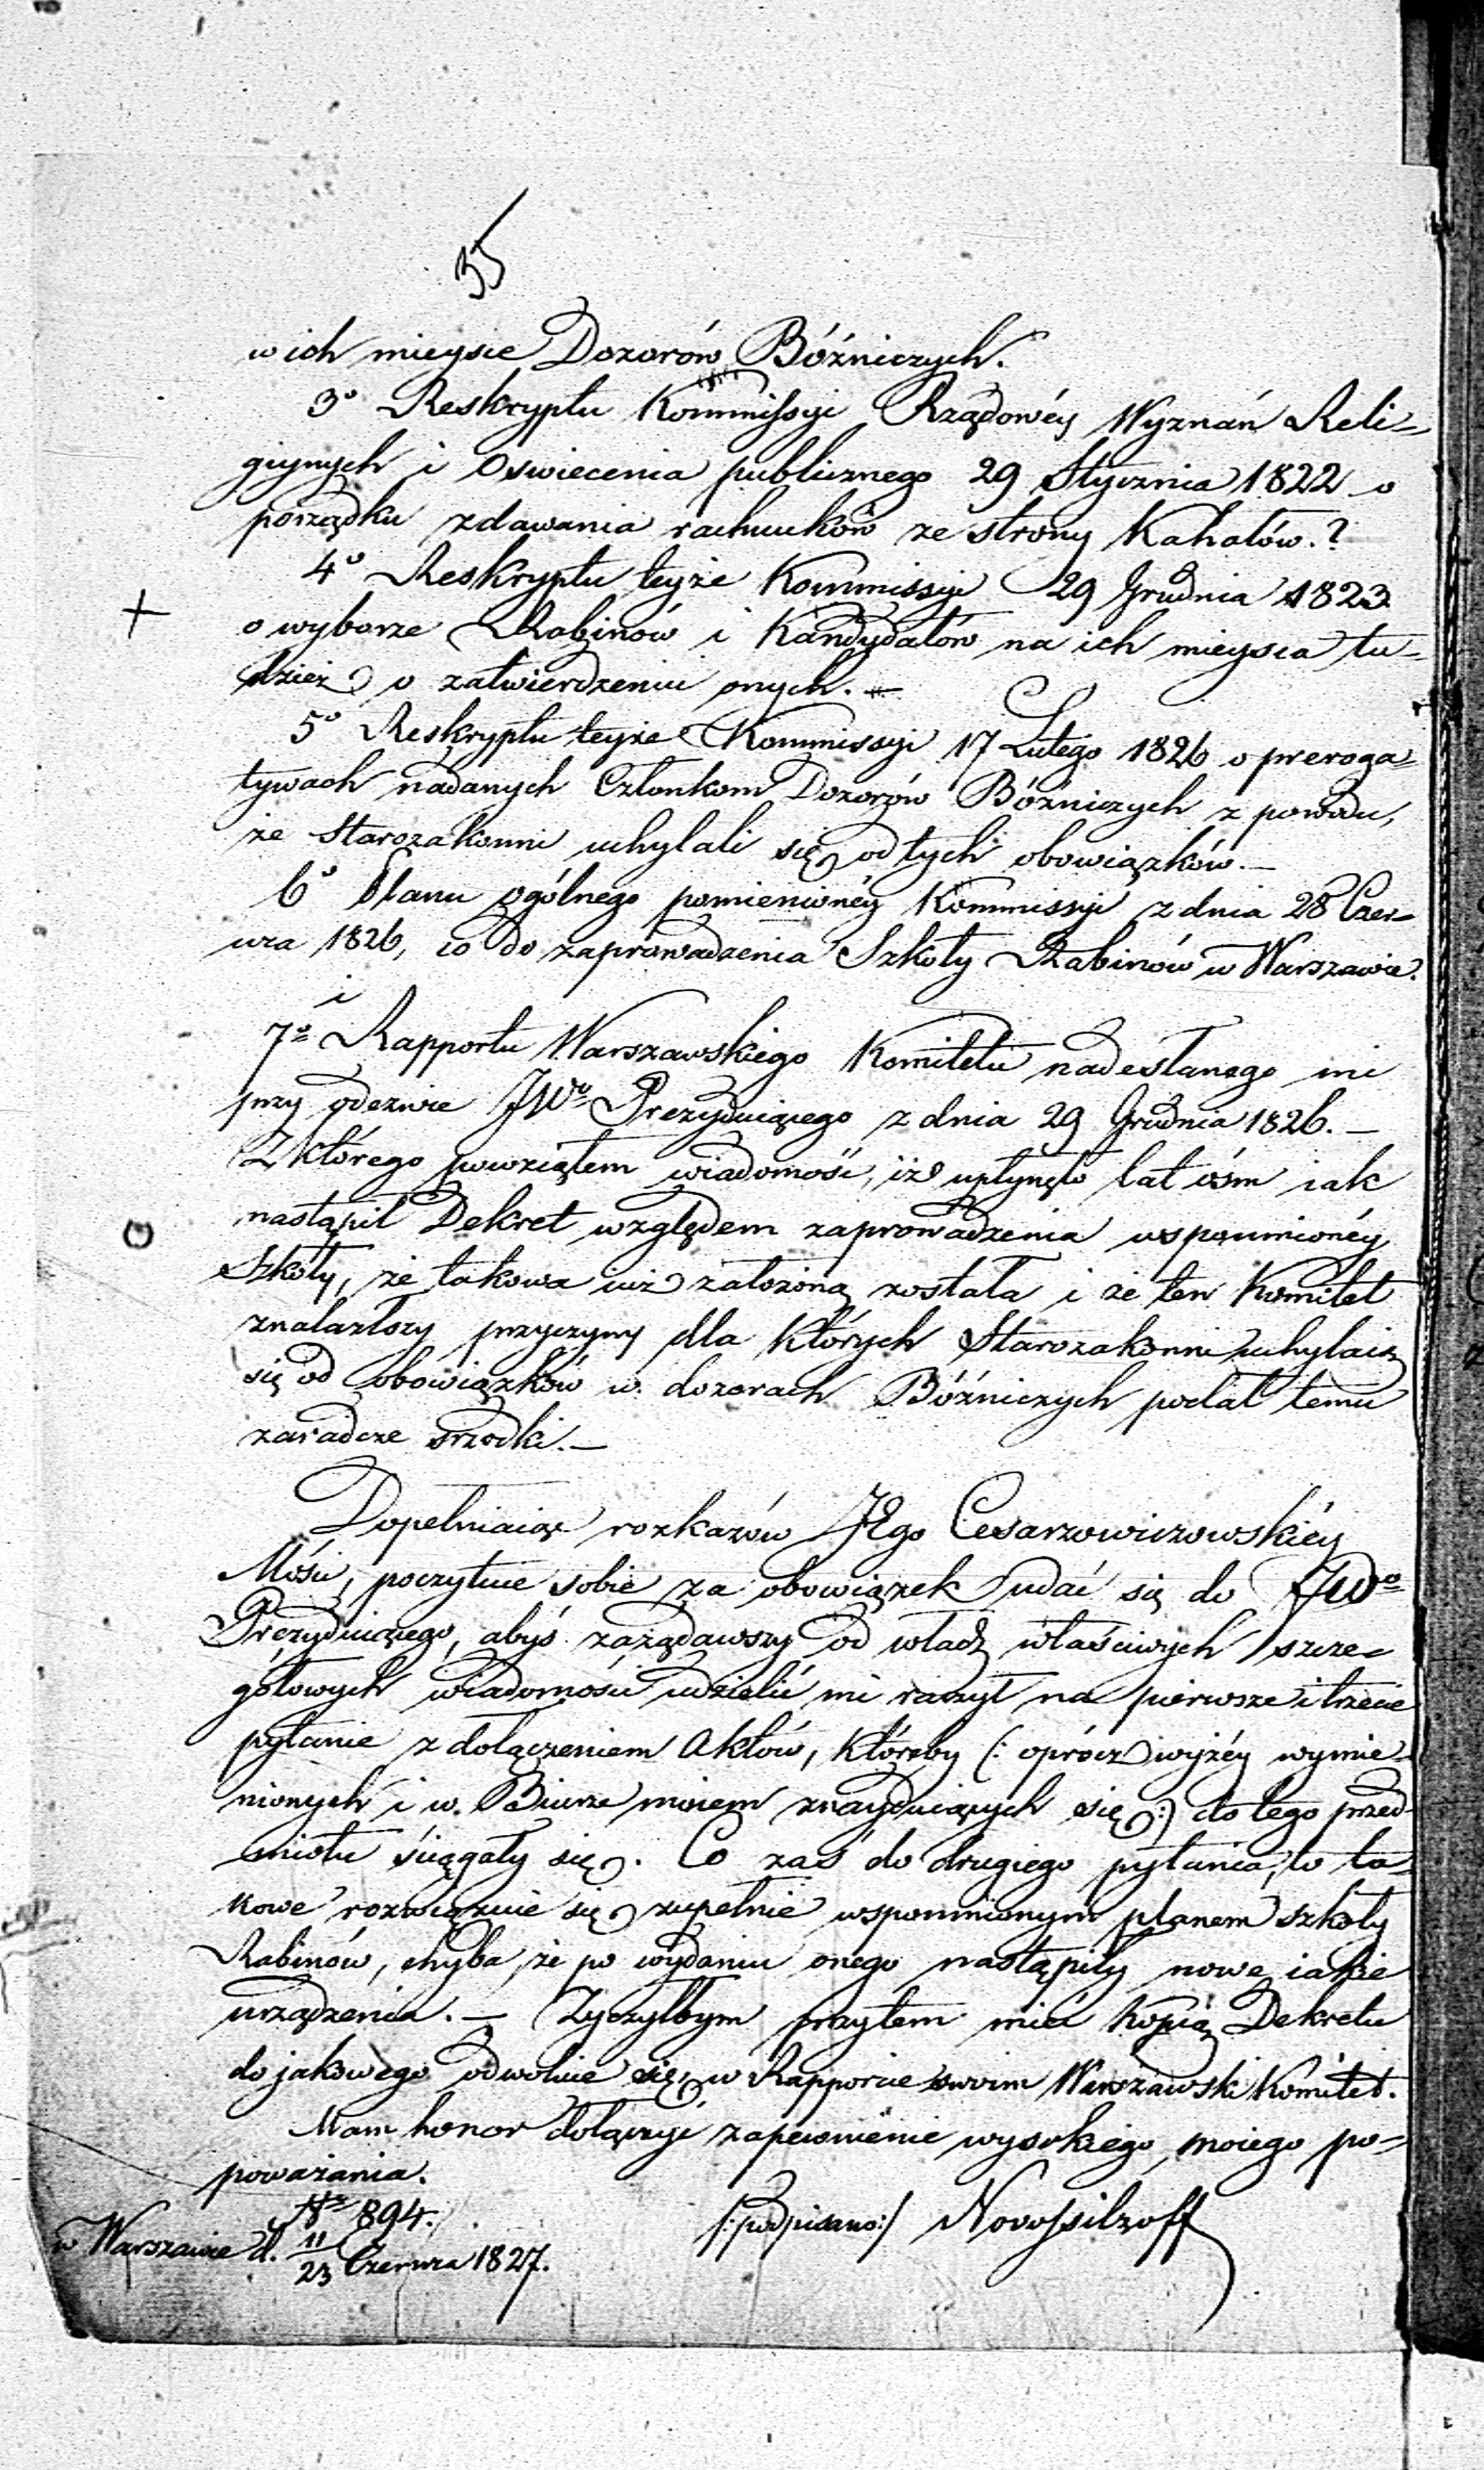 35
w ich mieysce Dozorów Bóźniczych.
3o Reskryptu Kommissyi Rządowéy Wyznań Reli=
giynych i Oswiecenia publicznego 29 Stycznia 1822 o
porządku zdawania rachunków ze strony Kahałów.?
4o Reskryptu teyże Kommissyi 29 Grudnia 1823
+ o wyborze Rabinów i Kandydatów na ich mieysca tu=
dzież o zatwierdzeniu onych. —
5o Reskryptu teyże Kommissyi 17 Lutego 1826 o preroga=
tywach nadanych Członkom Dozorów Bóźniczych z powodu,
że Starozakonni uchylali się od tych obowiązków. —
6o Planu ogólnego pomienionéy Kommissyi z dnia 28 Czer=
wca 1826, co do zaprowadzenia Szkoły Rabinów w Warszawie.
i
7o Rapportu Warszawskiego Komitetu nadesłanego mi
przy odezwie JWo Prezyduiącego z dnia 29 Grudnia 1826. —
Z którego powziąłem wiadomość, iż upłynęło lat ośm iak
nastąpił Dekret względem zaprowadzenia wspomnionéy
Szkoły, że takowa iuż założoną została i że ten Komitet
znalazłszy przyczyny dla których Starozakonni uchylaią
się od obowiązków w. dozorach Bóźniczych podał temu
zaradcze srzodki. —
Dopełniaiąc rozkazów JEgo Cesarzowiczowskiéy
Mości, poczytuie sobie za obowiązek udać się do JWo
Prezyduiącego, abyś zażądawszy od władz właściwych szcze=
gółowych wiadomości udzielić mi raczył na pierwsze i trzecie
pytanie z dołączeniem Aktów, któreby (: oprócz wyżéy wymie=
nionych i w. Biurze moiem znayduiących się :) do tego przed=
miotu ściągały się. Co zaś do drugiego pytania, to ta=
kowe rozwiązuie się zupełnie wspomnionym planem szkoły
Rabinów, chyba, że po wydaniu onego nastąpiły nowe iakie
urządzenia. — Życzyłbym przytem mieć kopią Dekretu
do jakowego odwołuie się w Rapporcie swoim Warszawski Komitet.
Mam honor dołączyć zapewnienie wysokiego, moiego po=
poważania.
No 894.
/:podpisano:/ Novossilzoff
w Warszawie d. 11/23 Czerwca 1827.